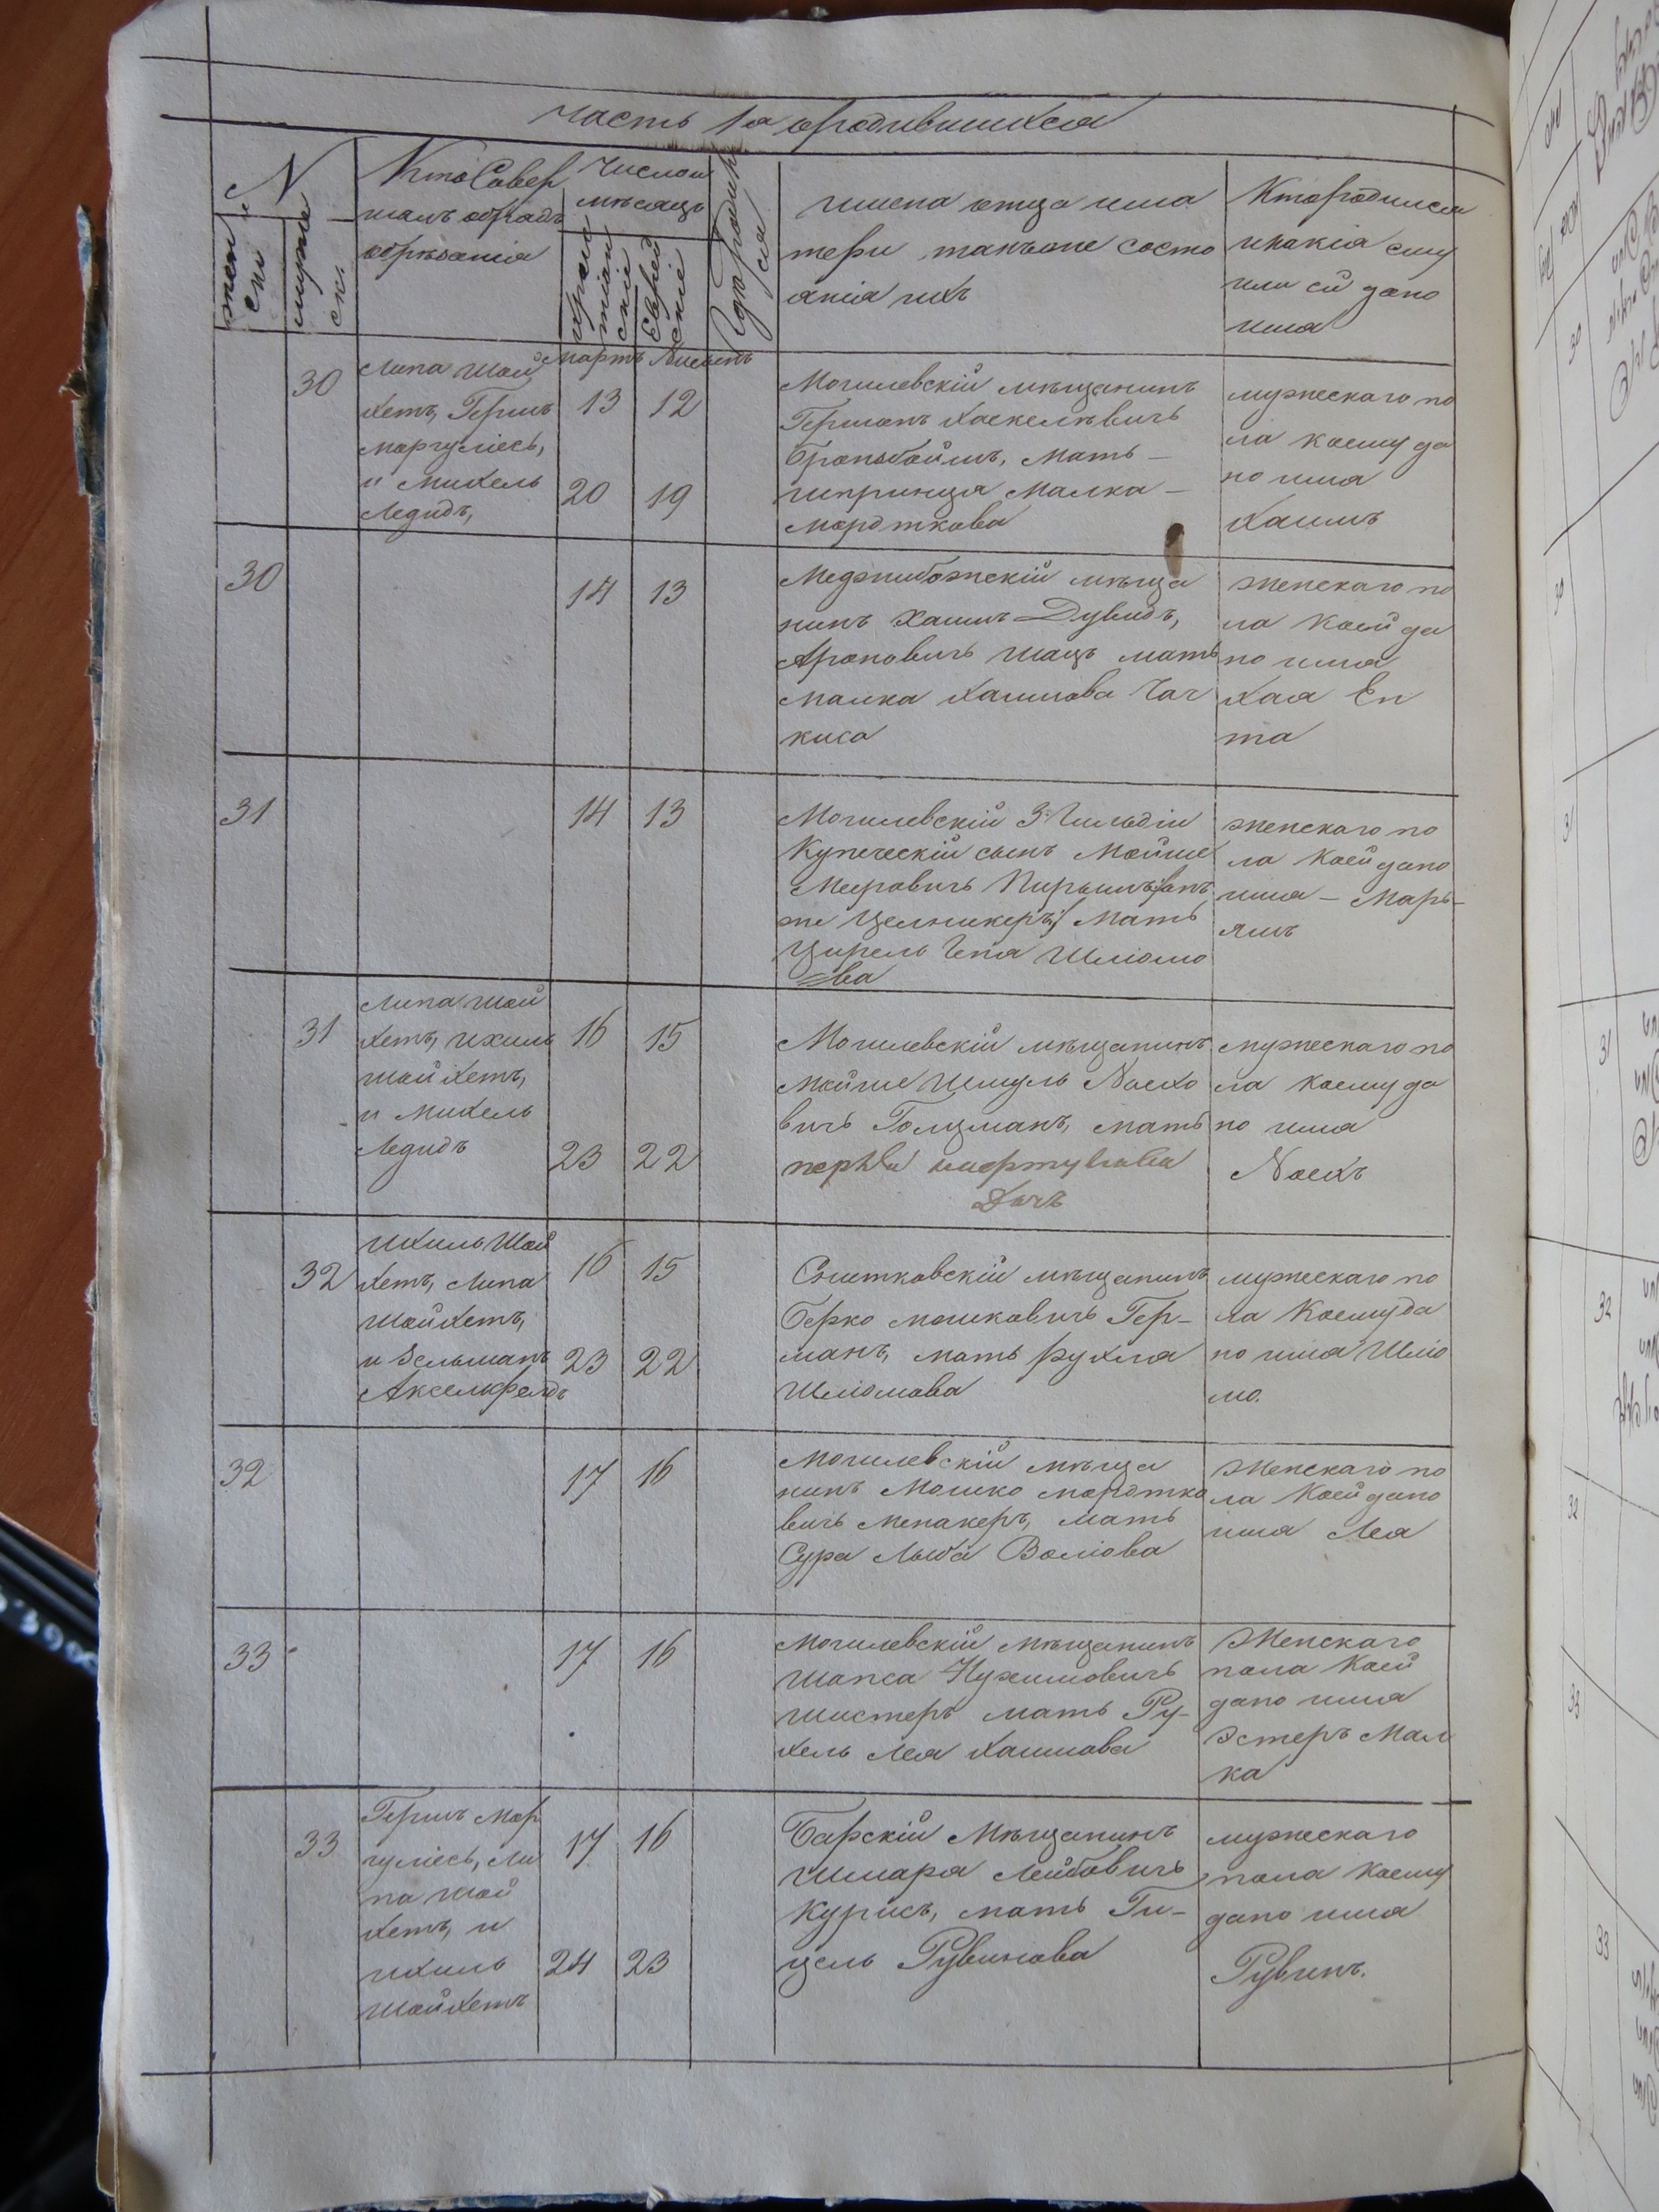 Часть 1я о родившихся
№
женски
мужески
Кто Совер
шалъ обрядъ
обрѣзанія
Число и
мѣсяцъ
христіанскіе
Еврейскіе
Гдѣ Родился
имена отца и ма
тери также состо
янія ихъ
Кто родился
и какія ему
или ей дано
имя
Мартъ Нисынъ
30
Липа Шой
хетъ, Гершъ
Маргуліесъ,
и Михель
Ледидъ,
13 12
20 19
Могилевскій мѣщанинъ
Германъ Хаскелевичъ
Бронбоймъ, Мать –
Шпринца Малка –
Мордткова
мужескаго по
ла коему да
но имя
Хаимъ
30
14 13
Меджибожскій мѣща
нинъ Хаимъ Дувидъ,
Ароновичъ Шацъ мать
Малка Хаимова Чач
киса
женскаго по
ла Коей да
но имя
Хая Ен
та
31
14 13
Могилевскій 3 Гильдіи
Купеческій сынъ Мойше
Меировичъ
же Целникеръ/ Мать
Цирель Ченя Шліомо
ва
женскаго по
ла Коей дано
имя – Марь–
ямъ
31
Липа Шой
хетъ, Ихиль
Шойхетъ,
и Михель
Ледидъ
16 15
23 22
Могилевскій мѣщанинъ
Мойше Шмуль Носхо
вичъ Голцманъ, мать
мужескаго по
ла коему да
но имя
Носхъ
32
Ихиль Шой
хетъ, Липа
Шойхетъ,
и Зельманъ
Акселирадъ
16 15
23 22
Снитковскій мѣщанинъ
Берко Мошковичъ Гер–
манъ, мать Рухля
Шліомова
мужескаго по
ла Коему да
но имя Шліо
мо.
32
17 16
Могилевскій мѣща
нинъ Мошко Мордтко
вичъ Менакеръ, мать
Сура Лыба Воліова
Женскаго по
ла Коей дано
имя Лея
33
17 16
Могилевскій мѣщанинъ
Шапса Нухимовичъ
Шистеръ мать Ру–
хель Лея Хаимова
Женскаго
пола Коей
дано имя
Эстеръ Мал
ка
33
Гершъ Мар
гуліесъ, Ли
па Шой
хетъ, и
Ихиль
Шойхетъ
17 16
24 23
Барскій Мѣщанинъ
Шмаря Лейбовичъ
Курисъ, мать Ги–
цель Рувинова
мужескаго
пола коему
дано имя
Рувинъ.